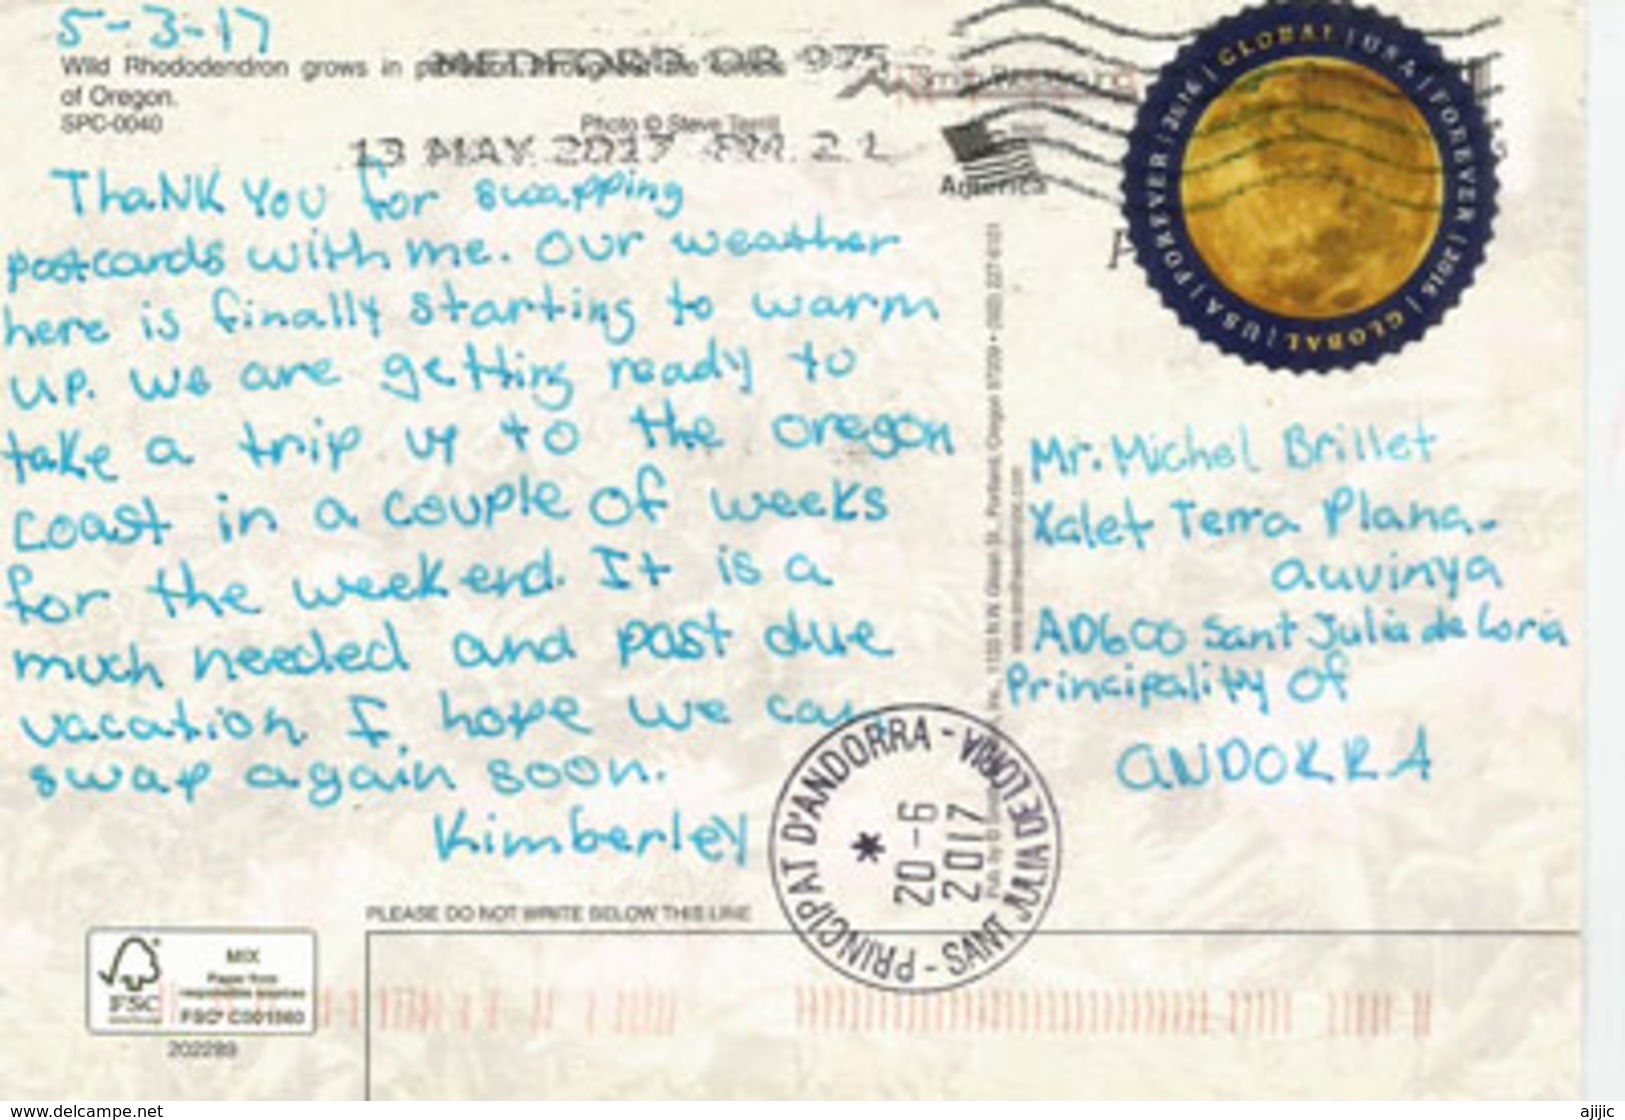 5-3-17
Wild Rhododendron grows in
of Oregon.
SPC-0040
Photo © Steve Terrill
MEDFORD OR 975
13 MAY 2017 PM 2 L
America
GLOBAL | USA | FOREVER | 2016 | GLOBAL | USA | FOREVER | 2016 |
ThaNK You for swapping
postcards with me. Our weather
here is finally starting to warm
up. We are getting ready to
take a trip up to the oregon
coast in a couple of weeks
for the weekend. It is a
much needed and past due
vacation. I hope we can
swap again soon.
Kimberley
Mr. Michel Brillet
Xalet Terra Plana-
auvinya
AD600 Sant Julia de Loria
Principality Of
ANDORRA
PRINCIPAT D'ANDORRA - SANT JULIA DE LORIA -
20-6
2017
PLEASE DO NOT WRITE BELOW THIS LINE
MIX
Paper from
responsible sources
FSC
FSC® C001560
202289
www.delcampe.net
ajijic